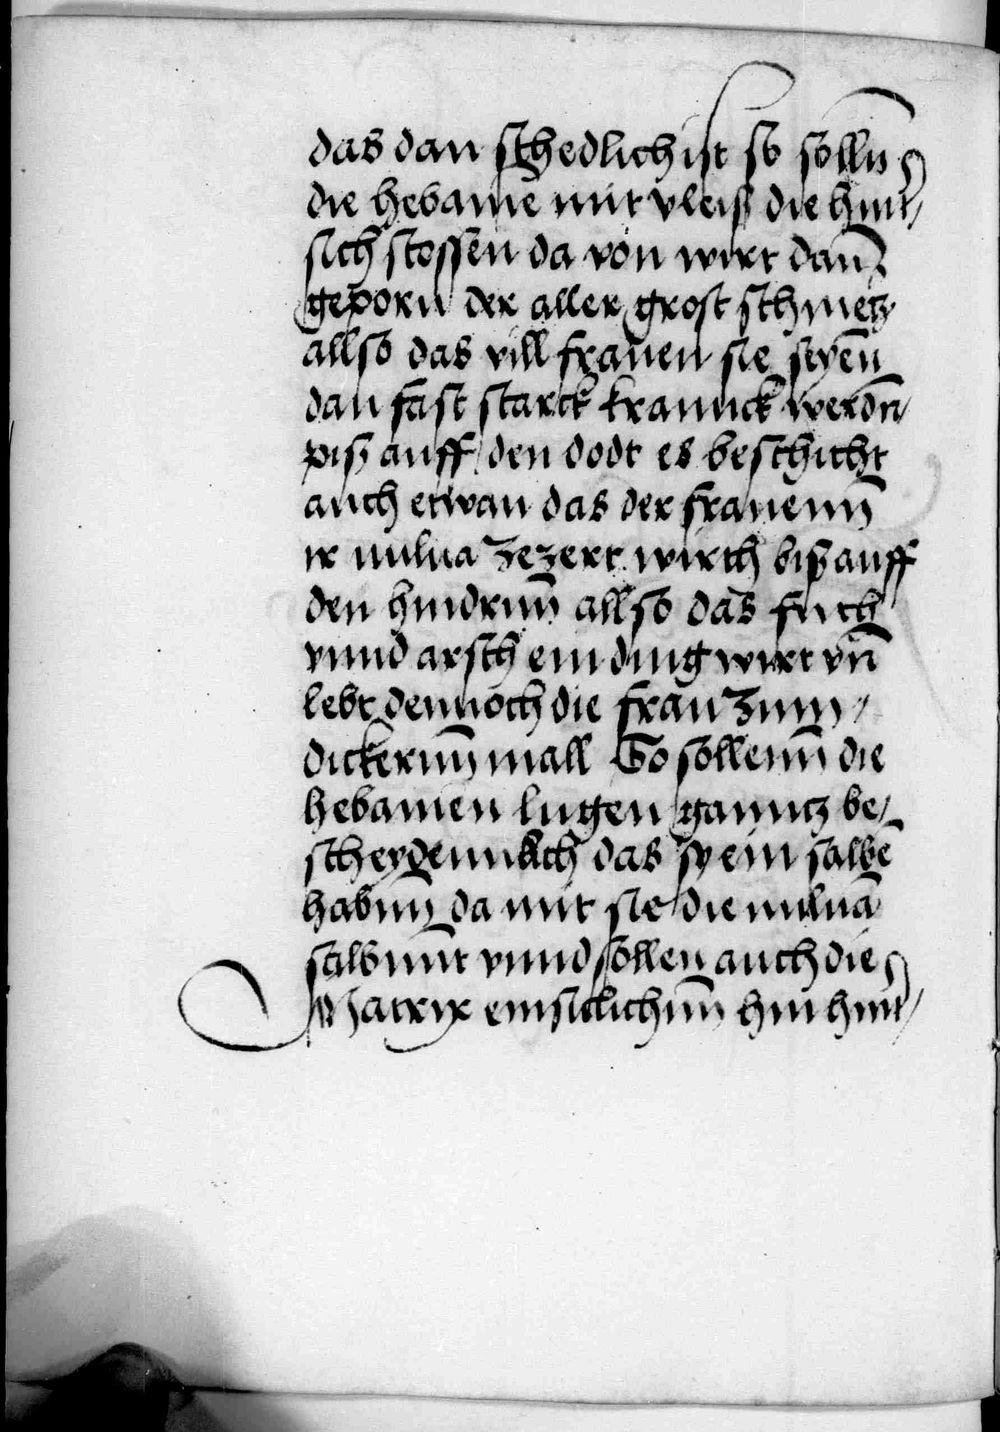 das dan schedlich ist so solln̄
die hebame mit vleiß die hint⸗
sich stossen da von wirt dan̄
geporn der aller grost schmetz
allso das vill frauen sie seyen̄
dan fast starck krannck werdn̄
piß auff den dodt es beschicht
auch etwan das der frauenn̄
ir mulua zezert wirth biß auff
den hindrnn̄ allso das futh
vnnd arsch ein ding wirt vn̄
lebt dennoch die frau zum
dickernn̄ mall So sollenn̄ die
hebamen lugen ganntz be⸗
scheydennlich das sy ein salbē
habnn̄ da mit sie die muluā
salbnn̄t vnnd sollen auch die
Matrix einsitlichnn̄ hin hint⸗